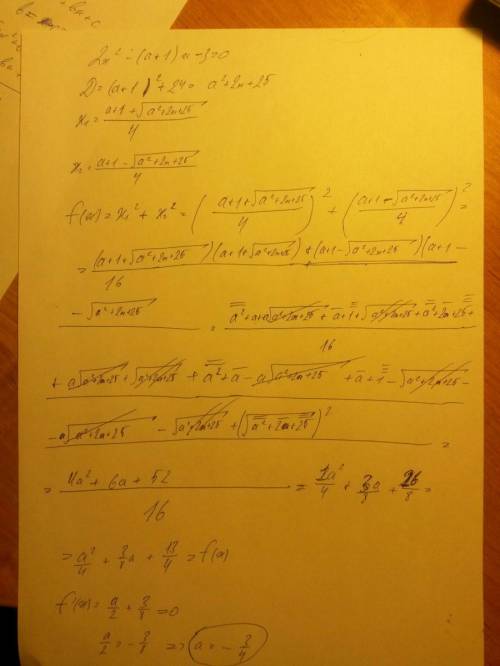 2x² - (a+1)x - 3 = 0
D = (a+1)² + 24 = a² + 2a + 25
x₁ = (a+1+√(a²+2a+25))/4
x₂ = (a+1-√(a²+2a+25))/4
f(a) = x₁² + x₂² = ((a+1+√(a²+2a+25))/4)² + ((a+1-√(a²+2a+25))/4)² =
= (a+1+√(a²+2a+25))(a+1+√(a²+2a+25)) + (a+1-√(a²+2a+25))(a+1-
16
-√(a²+2a+25) = a²+a+a√(a²+2a+25)+a+1+√(a²+2a+25)+a²+2a+25+
16
+a√(a²+2a+25)+√(a²+2a+25)+a²+a-a√(a²+2a+25)+a+1-√(a²+2a+25)-
-a√(a²+2a+25)-√(a²+2a+25)+(√(a²+2a+25))² =
= (4a²+6a+52)/16 = 1a²/4 + 3a/8 + 26/8 =
= a²/4 + 3/8a + 13/4 = f(a)
f'(a) = a/2 + 3/8 = 0
a/2 = -3/8 => a = -3/4